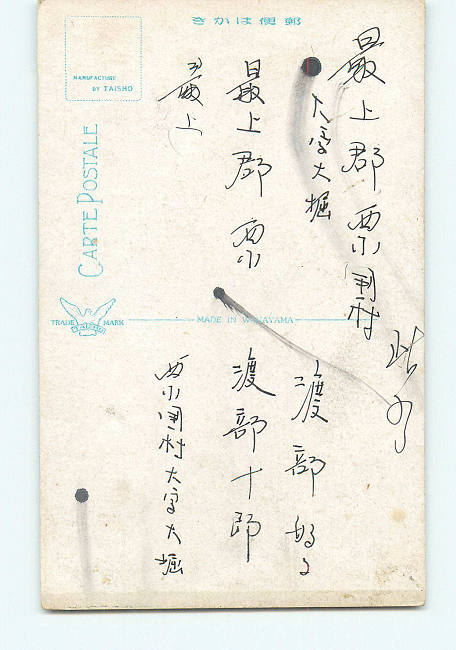 郵便はかき
最上郡東小国村
大字大堀
渡部
最上郡東
渡部十郎
最上
東小国村大字大堀
MANUFACTURE
BY TAISHO
CARTE POSTALE
TRADE MARK
TAISHO
MADE IN WAKAYAMA